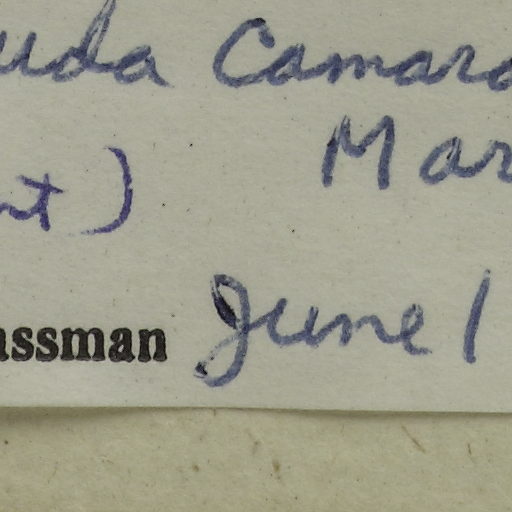 uda Camara
Mar
nt)
assman June 1